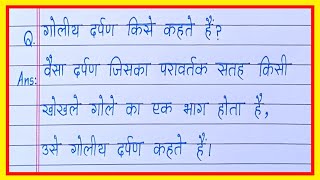 Q. गोलीय दर्पण किसे कहते हैं?
Ans: वैसा दर्पण जिसका परावर्तक सतह किसी
खोखले गोले का एक भाग होता है,
उसे गोलीय दर्पण कहते हैं।